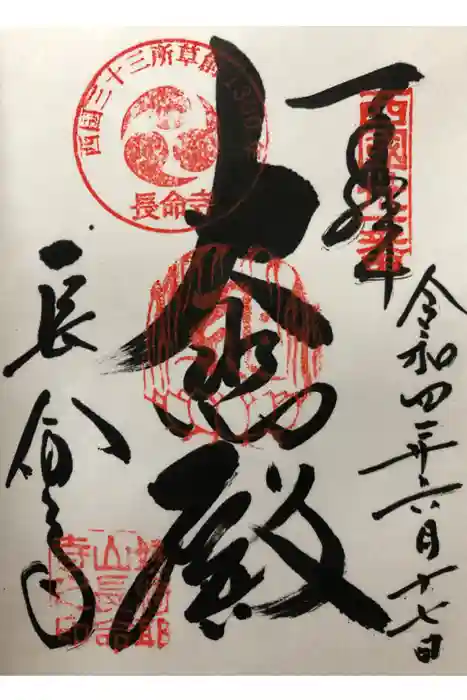 奉拝
西國三十一番
令和四年六月十七日
大悲殿
西国三十三所草創1300年
長命寺
長命寺